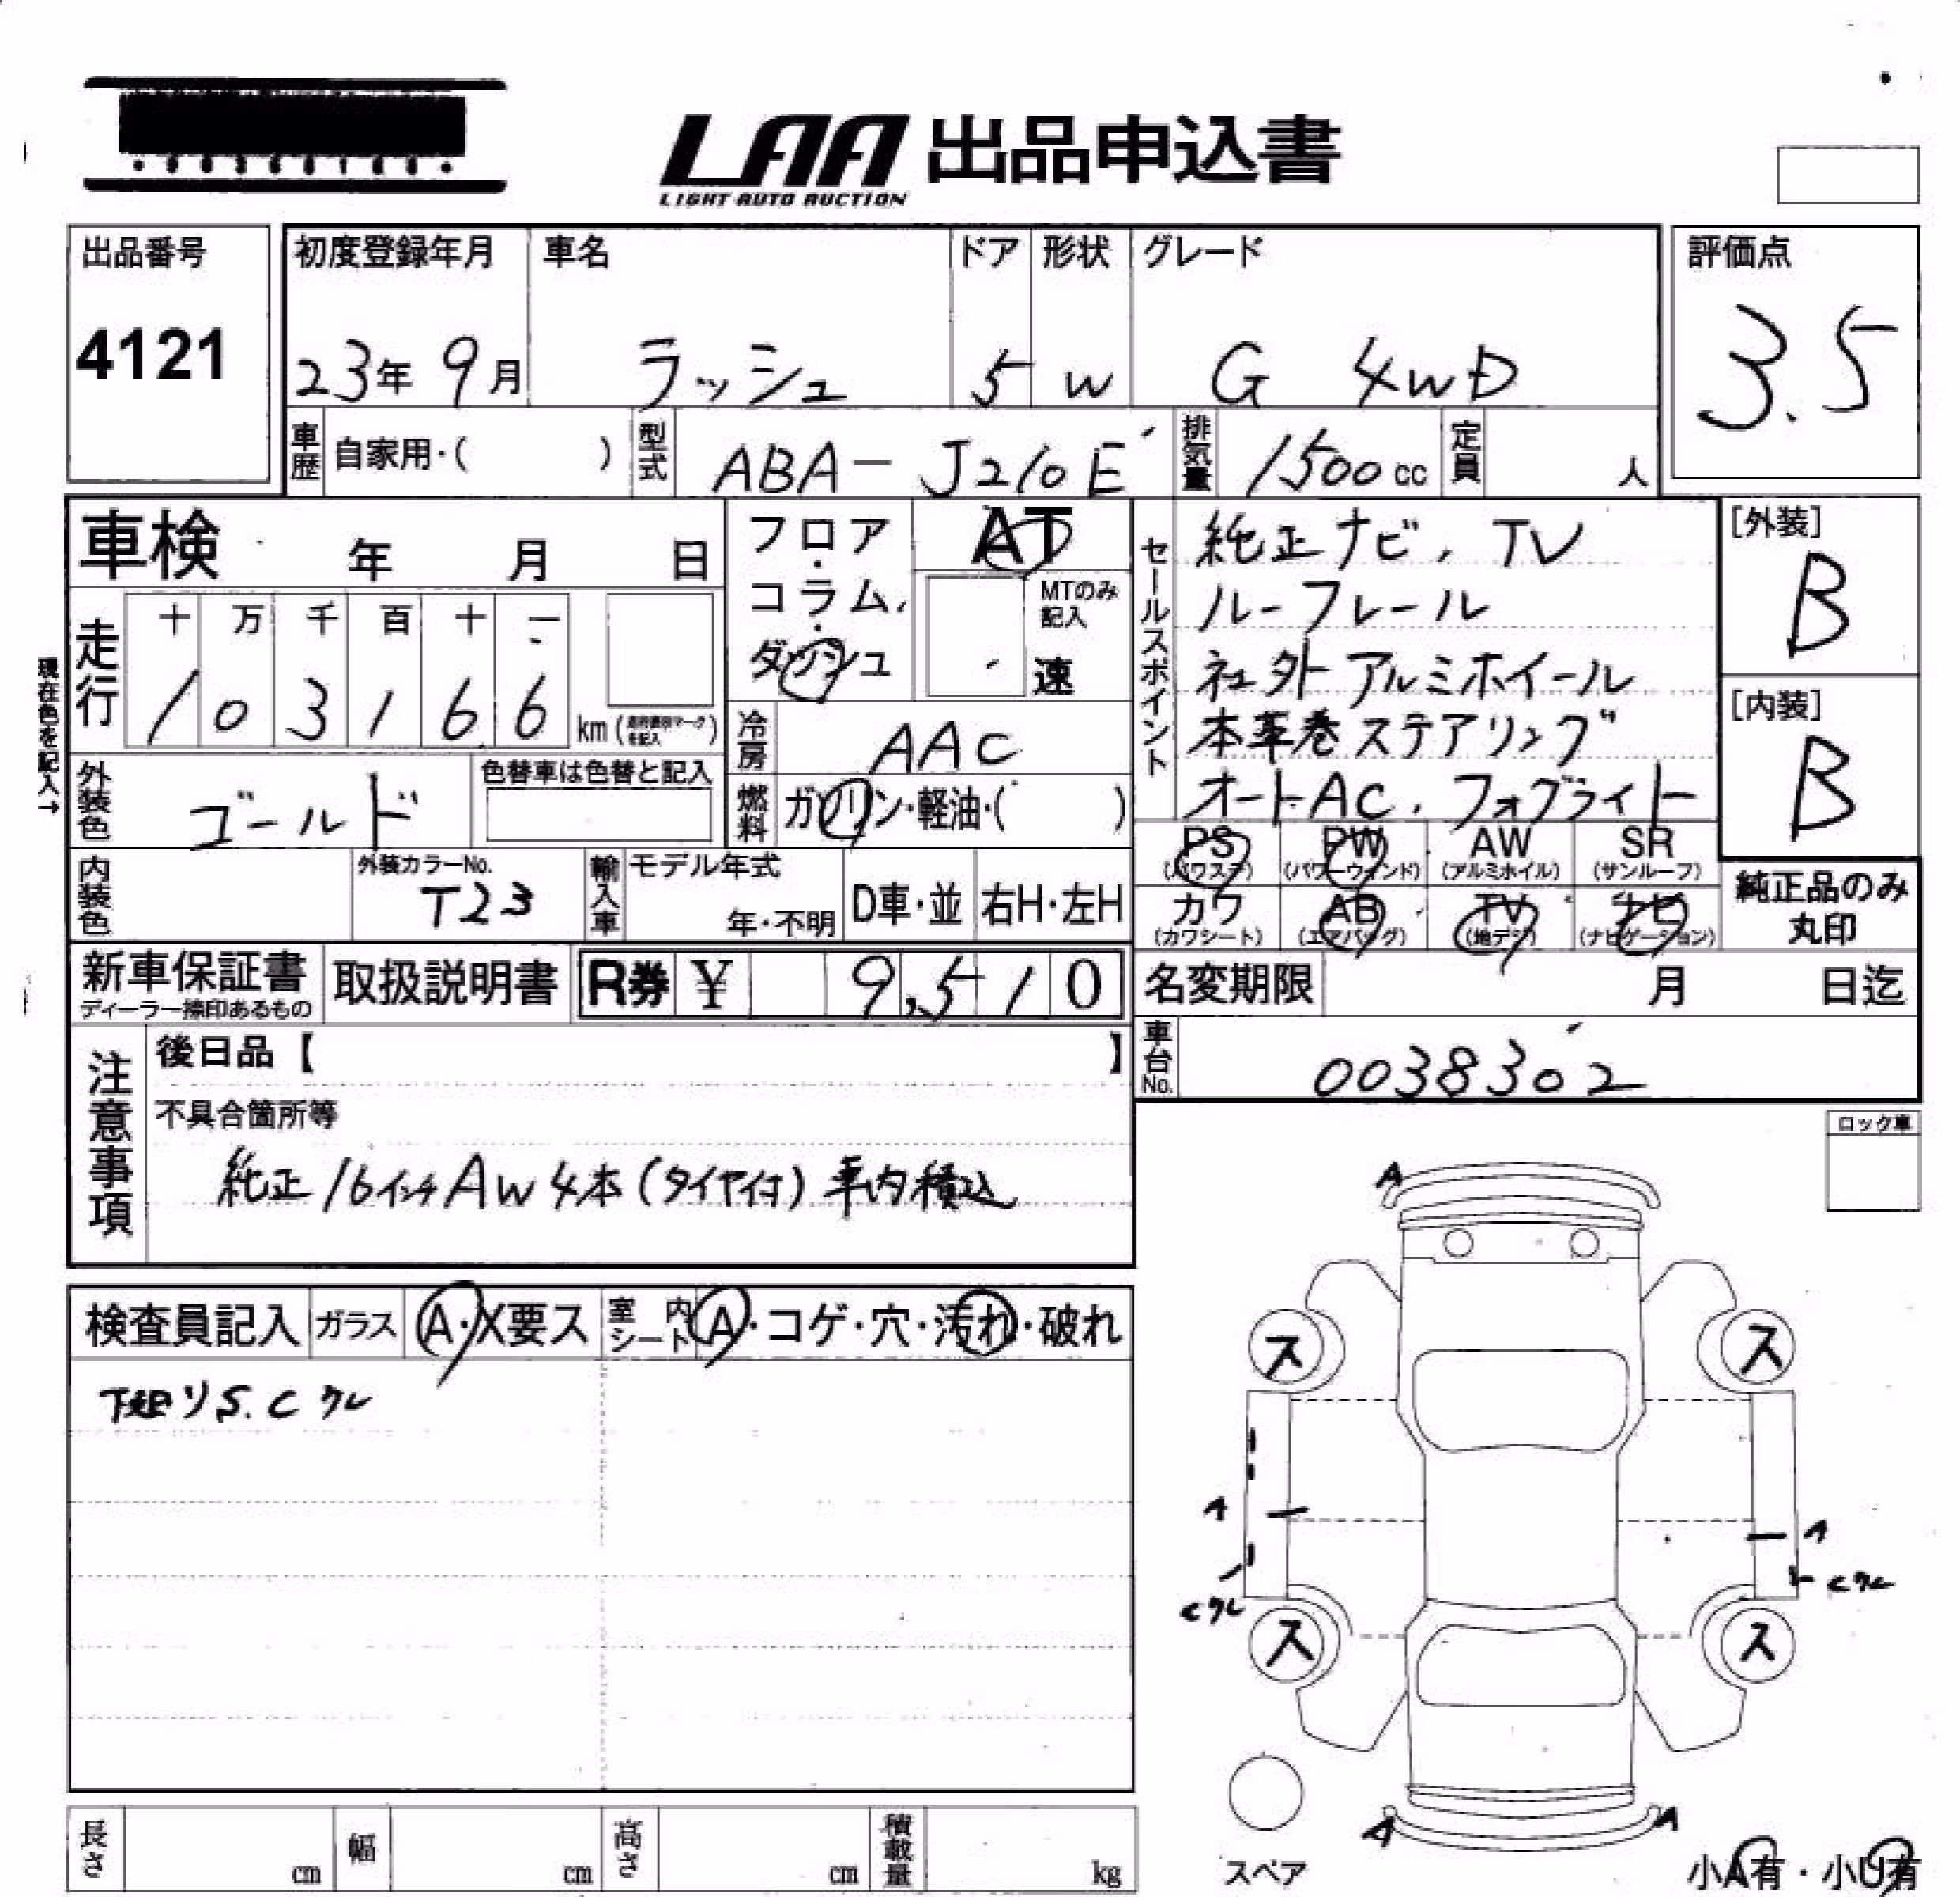 LAA 出品申込書
LIGHT AUTO AUCTION
出品番号
4121
初度登録年月
23年 9月
車名
ラッシュ
ドア
5
形状
W
グレード
G 4WD
評価点
3.5
車歴 自家用・( )
型式 ABA-J210E
排気量 1500cc
定員 人
車検 年 月 日
フロア・コラム・ダッシュ
AT
MTのみ記入
速
セールスポイント
純正ナビ, TV
ルーフレール
社外アルミホイール
本革巻ステアリング
オートAC, フォグライト
[外装]
B
[内装]
B
現在色を記入→
走行
十 万 千 百 十 一
1 0 3 1 6 6 km
冷房 AAC
外装色 ゴールド
色替車は色替と記入
燃料 ガソリン・軽油・( )
PS (パワステ)
PW (パワーウィンド)
AW (アルミホイル)
SR (サンルーフ)
カワ (カワシート)
AB (エアバッグ)
TV (地デジ)
ナビ (ナビゲーション)
純正品のみ丸印
内装色
外装カラーNo.
T23
輸入車
モデル年式
年・不明
D車・並
右H・左H
新車保証書
ディーラー捺印あるもの
取扱説明書
R券 ¥ 9,510
名変期限 月 日迄
車台No. 0038302
注意事項
後日品【 】
不具合箇所等
純正16インチAW4本(タイヤ付)車内積込
ロック車
検査員記入
ガラス A・X要ス
室内シート A・コゲ・穴・汚れ・破れ
下廻りS.Cワレ
A
ス ス
A A
Cワレ Cワレ
ス ス
A A
スペア
小A有・小U有
長さ cm
幅 cm
高さ cm
積載量 kg